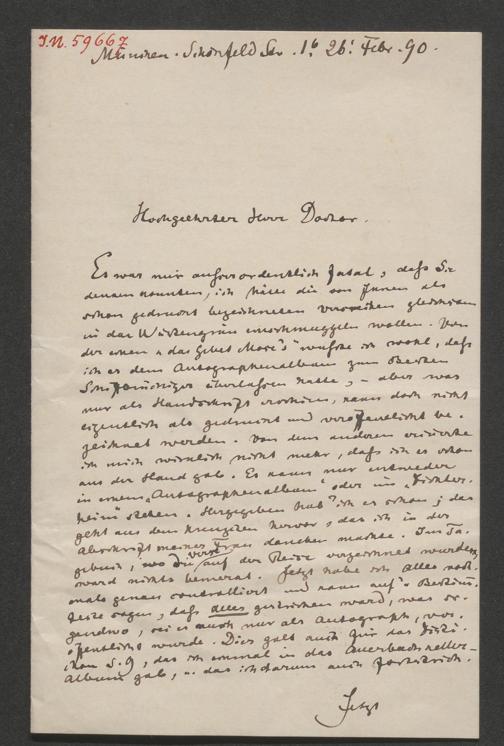 I.N. 59667
München. Schönfeld Str. 1b 26. Febr. 90.
Hochgeehrter Herr Doctor.
Es war mir außerordentlich fatal, daß Sie
denken konnten, ich hätte die von Ihnen als
schon gedruckt bezeichneten gleichsam
in das einschmuggeln wollen. Von
der einen „das Gebet wußte ich wohl, daß
ich es dem Autographenalbum zum Besten
Schiffbrüchiger überlassen hatte, – aber was
nur als Handschrift erschien, kann doch nicht
eigentlich als gedruckt und veröffentlicht be-
zeichnet werden. Von dem anderen
ich mich wirklich nicht mehr, daß ich es schon
aus der Hand gab. Es kann nur entweder
in einem „Autographenalbum“ oder im „Dichter-
heim“ stehen. Hergegeben hab' ich es schon; das
geht aus dem Kreuzchen hervor, das ich in der
Abschrift meiner Frau daneben machte. Im Ta-
gebuch, wo die auf der Reise verzeichnet wurden,
ward nichts bemerkt. Jetzt habe ich alles noch-
mals genau controllirt und kann auf's Bestimm-
teste sagen, daß alles gestrichen ward, was ir-
gendwo, sei es auch nur als Autograph, ver-
öffentlicht wurde. Dies galt auch für das
S. 9, das ich einmal in das Auerbachkeller-
Album gab, u. das ich darum auch
Jetzt